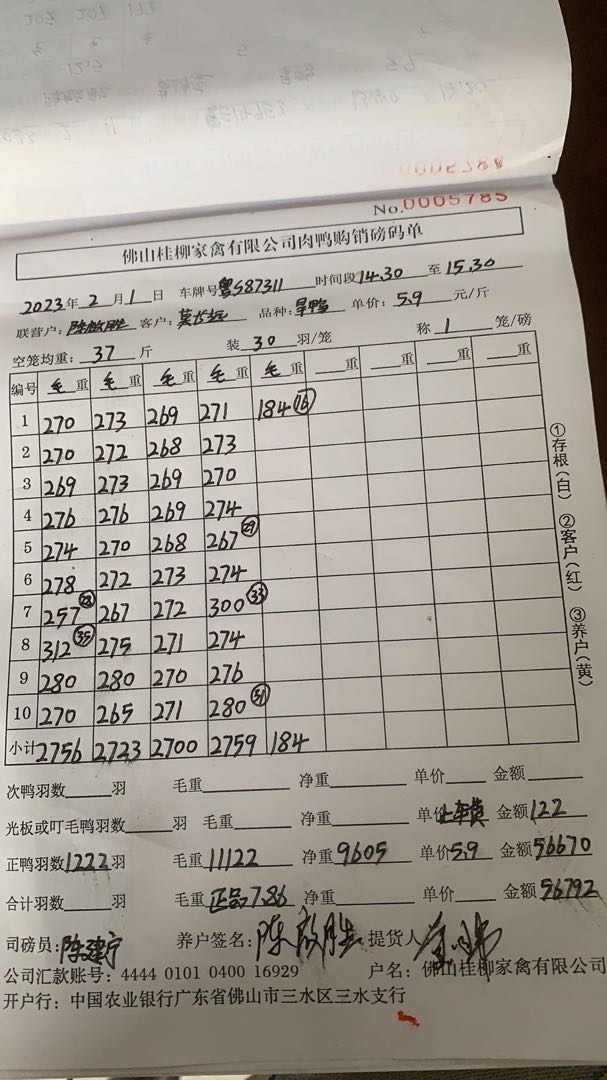 No.0005785
佛山桂柳家禽有限公司肉鸭购销磅码单
2023年2月1日 车牌号粤S87311 时间段14.30至15.30
联营户: 陈啟胜 客户: 莫长远 品种: 旱鸭 单价: 5.9 元/斤
空笼均重: 37 斤 装 30 羽/笼 称 1 笼/磅
编号 毛重 毛重 毛重 毛重 毛重 重 重 重 重
1 270 273 269 271 184 ⑯
2 270 272 268 273
3 269 273 269 270
4 276 276 269 274
5 274 270 268 267 ㉙
6 278 272 273 274
7 257 ㉘ 267 272 300 ㉝
8 312 ㉟ 275 271 274
9 280 280 270 276
10 270 265 271 280 ㉛
小计 2756 2723 2700 2759 184
①存根(白) ②客户(红) ③养户(黄)
次鸭羽数 羽 毛重 净重 单价 金额
光板或叮毛鸭羽数 羽 毛重 净重 单价上车费 金额122
正鸭羽数1222羽 毛重11122 净重9605 单价5.9 金额56670
合计羽数 羽 毛重正品7.86 净重 单价 金额56792
司磅员: 陈建宁 养户签名: 陈啟胜 提货人
公司汇款账号: 4444 0101 0400 16929 户名: 佛山桂柳家禽有限公司
开户行: 中国农业银行广东省佛山市三水区三水支行